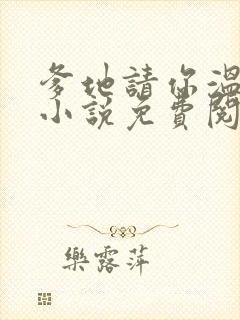 爹地請你溫
小說免費閱
樂露萍